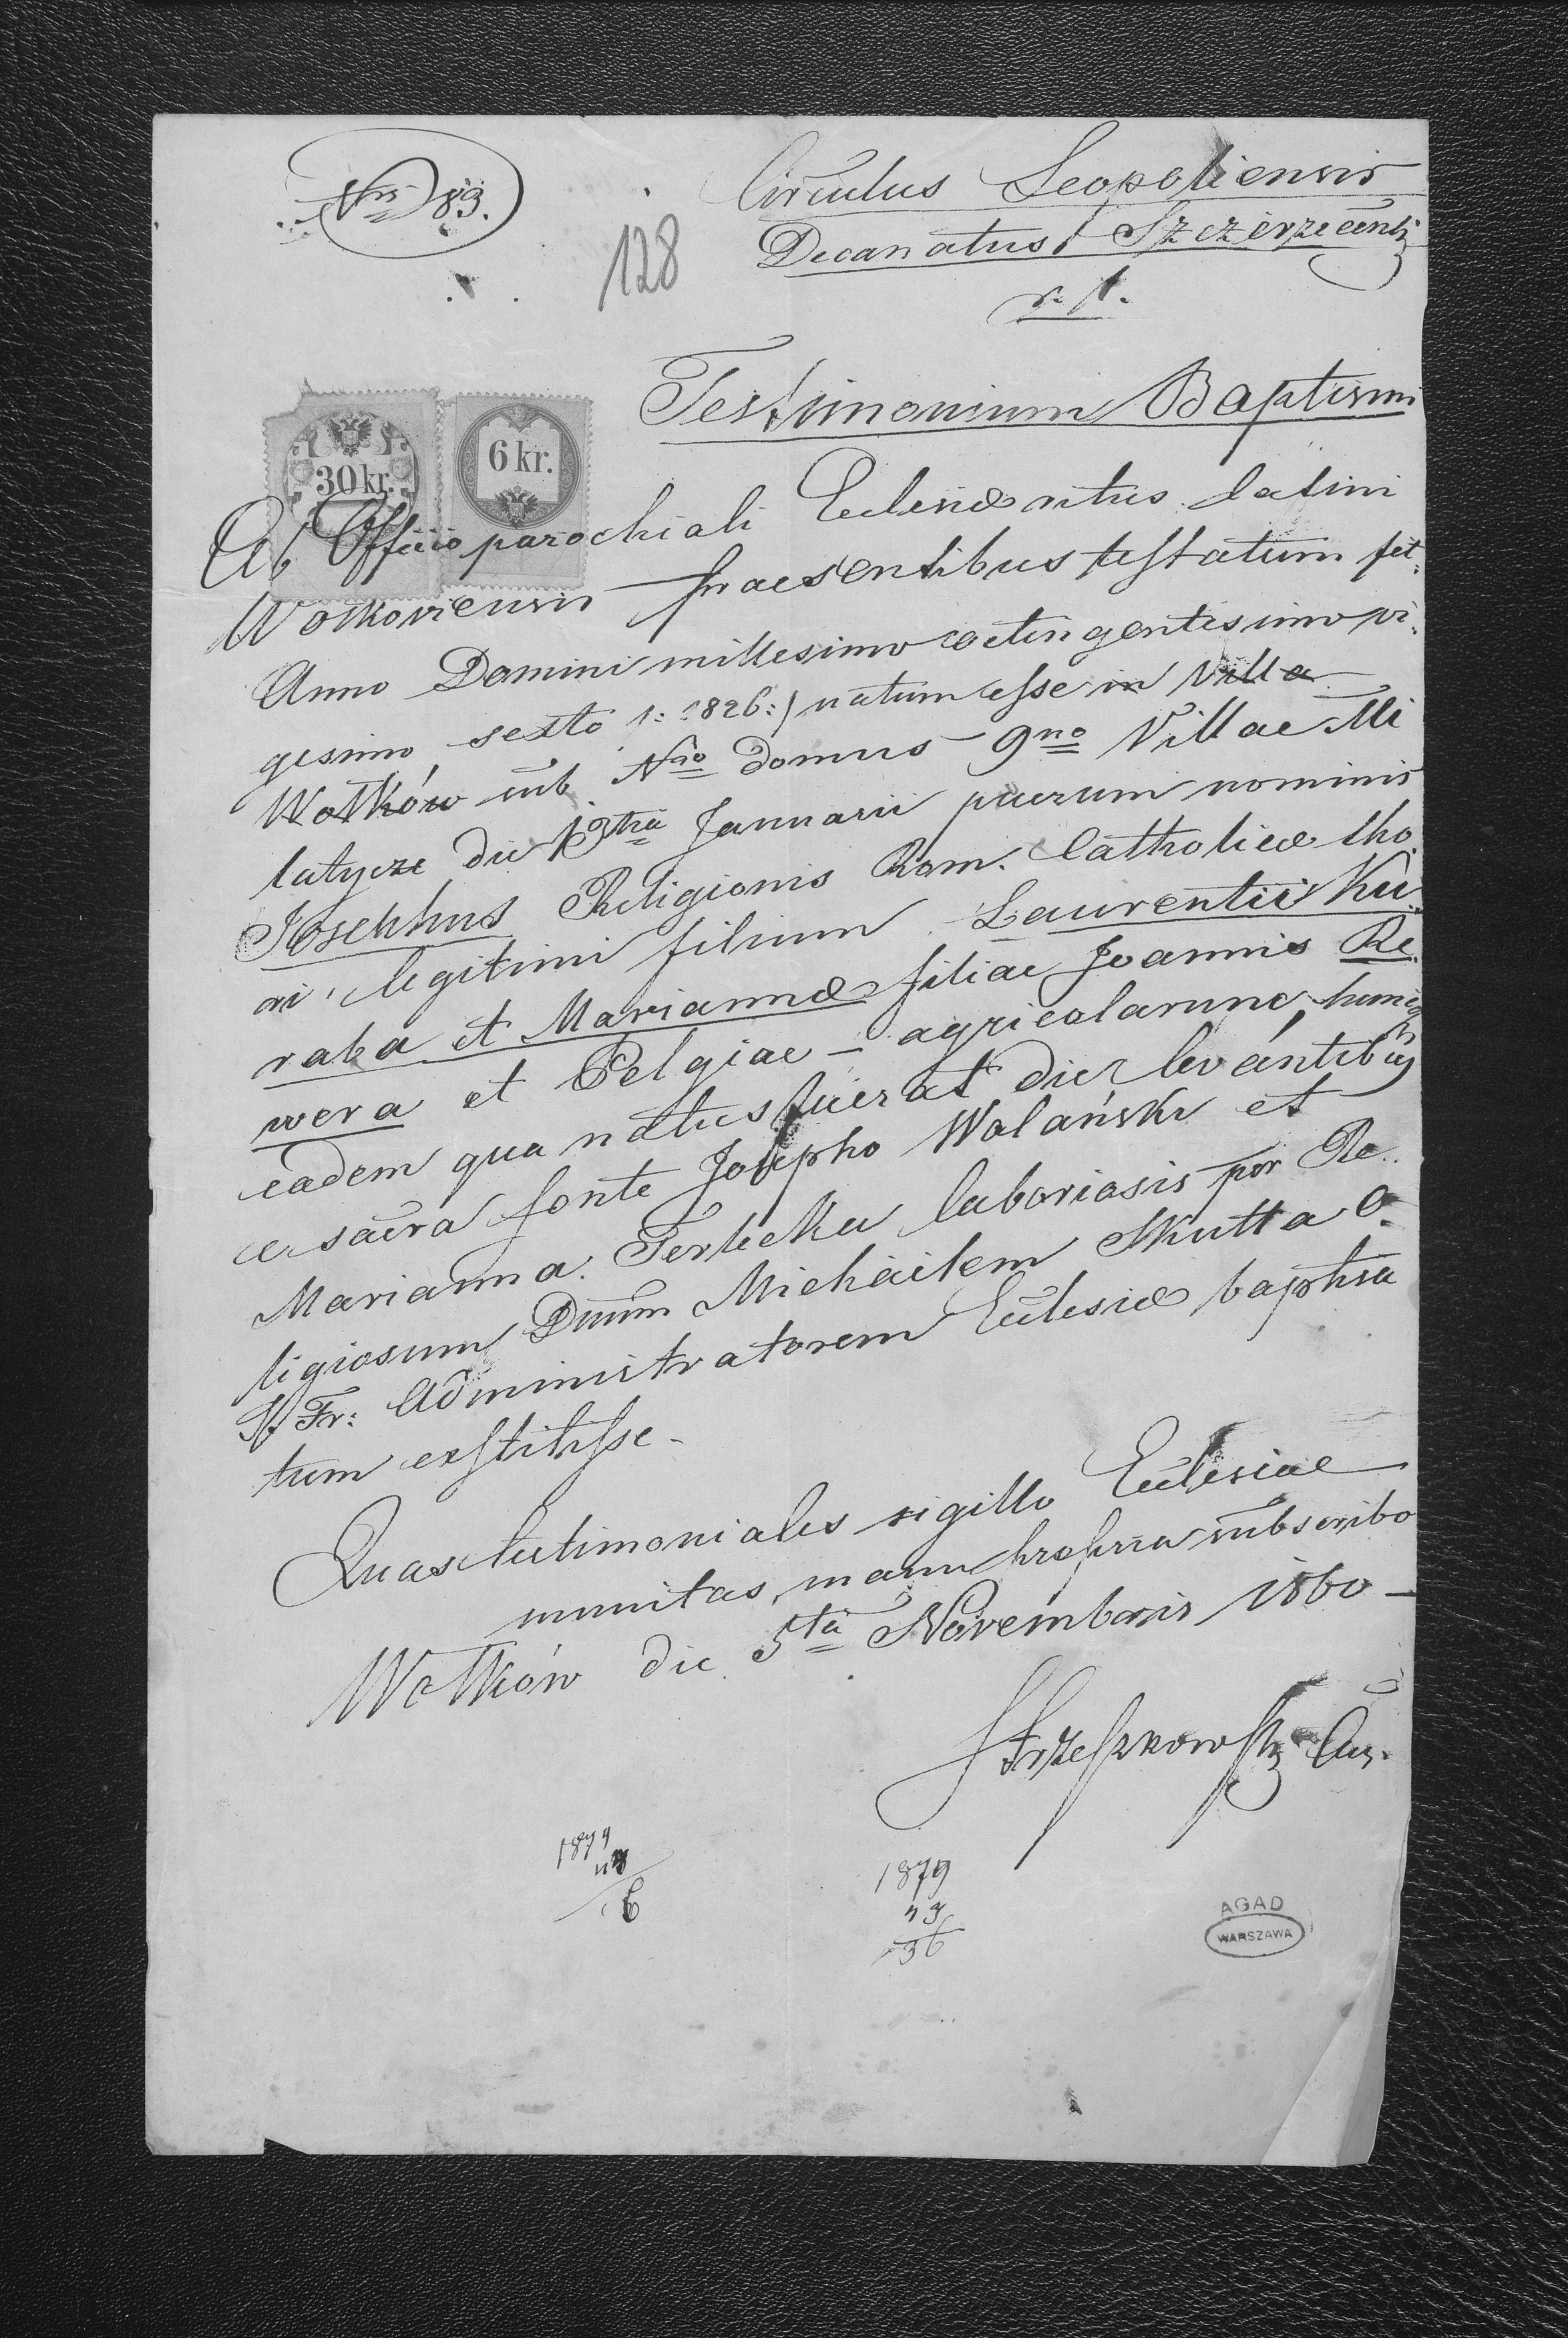 Nrs 83.
128
Circulus Leopoliensis
Decanatus Szczerzecens
r. l.
Testimonium Baptismi
30 kr.
6 kr.
Ab Officio parochiali Eclesiæ ritus latini
Wołkoviensis praesentibus testatum fit
Anno Domini millesimo octingentesimo vi:
gesimo sexto /: 1826:/ natum esse in Villa
Wołków sub Nro domus 9no Villae Mi
latycze die 13tia Januarii puerum nominis
Josephus Religionis Rom. Catholicæ tho
ri legitimi filium Laurentii Ku:
raba et Mariannæ filiae Joannis Re
wera et Pelgiae - agricolarum, huncq
eadem qua natus fuerat die levantibus
e sacra fonte Josepho Wolański et
Marianna Terlecka laboriosis per Re..
ligiosum Dnum Michäelem Skutta O.
S. Fr: Administratorem Eclesiæ baptisa
tum exstitisse.
Quas testimoniales sigillo Eclesiae
munitas, manu propria subscribo
Wołków die 5ta Novembris 1860
Strzeszkowski
1879
1879
36
AGAD
WARSZAWA